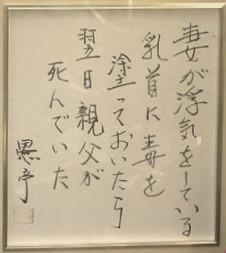 妻が浮気をしている
乳首に毒を
塗っておいたら
翌日親父が
死んでいた
愚亭